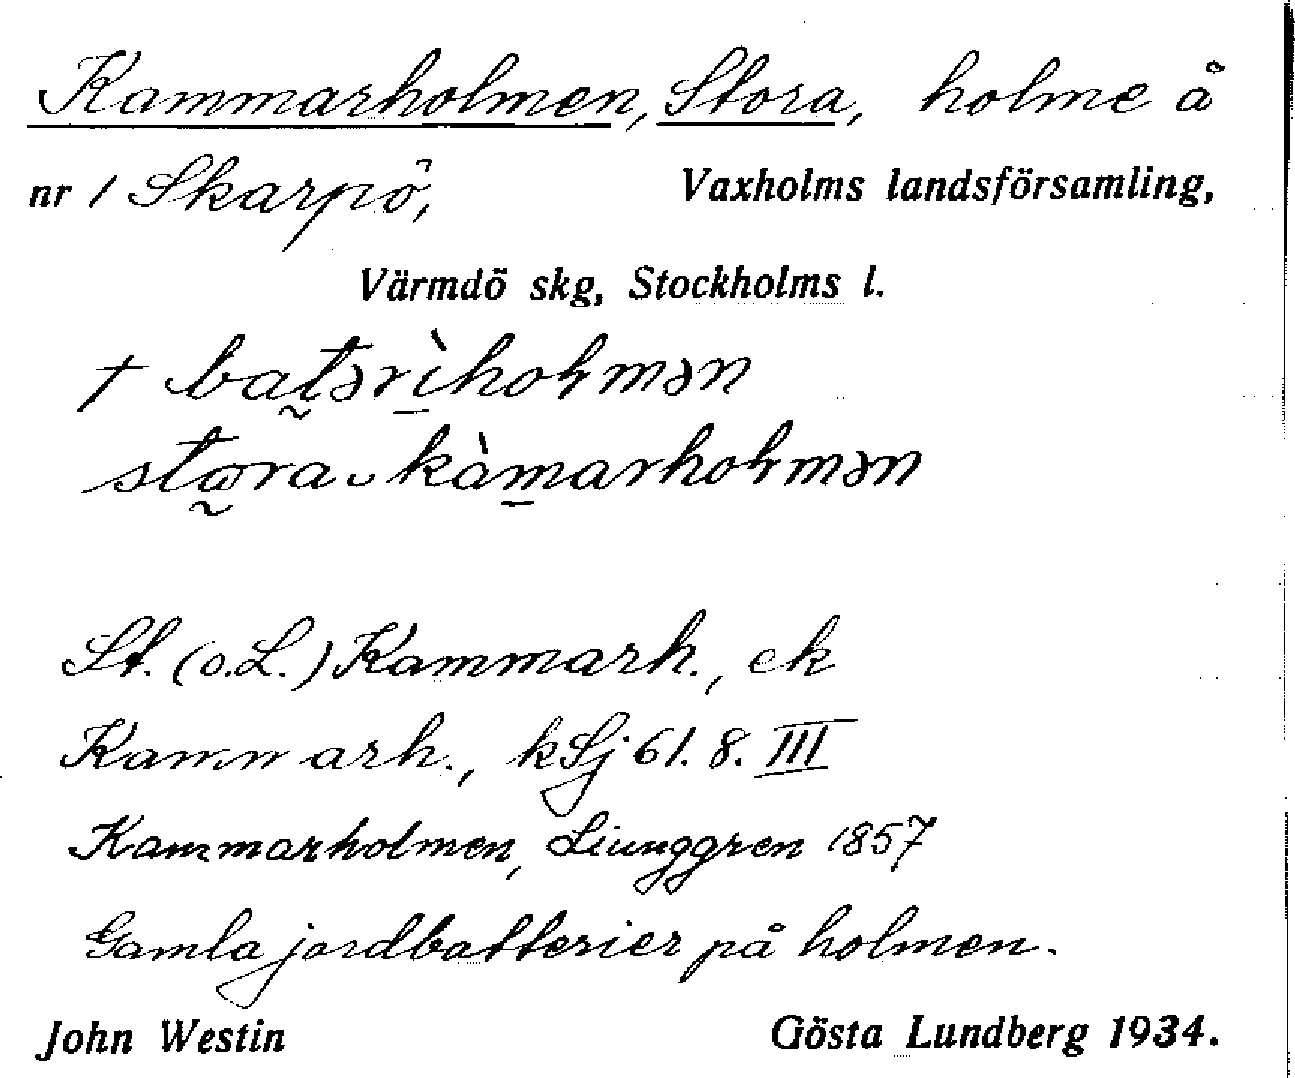 Kammarholmen, Stora, holme å
nr 1 Skarpö, Vaxholms landsförsamling,
Värmdö skg, Stockholms l.
† batərìholmən
stora ‿ kàmarholmən
St. (o. L.) Kammarh., ek
Kammarh., kSj 61. 8. III
Kammarholmen, Liunggren 1857
Gamla jordbatterier på holmen.
John Westin Gösta Lundberg 1934.